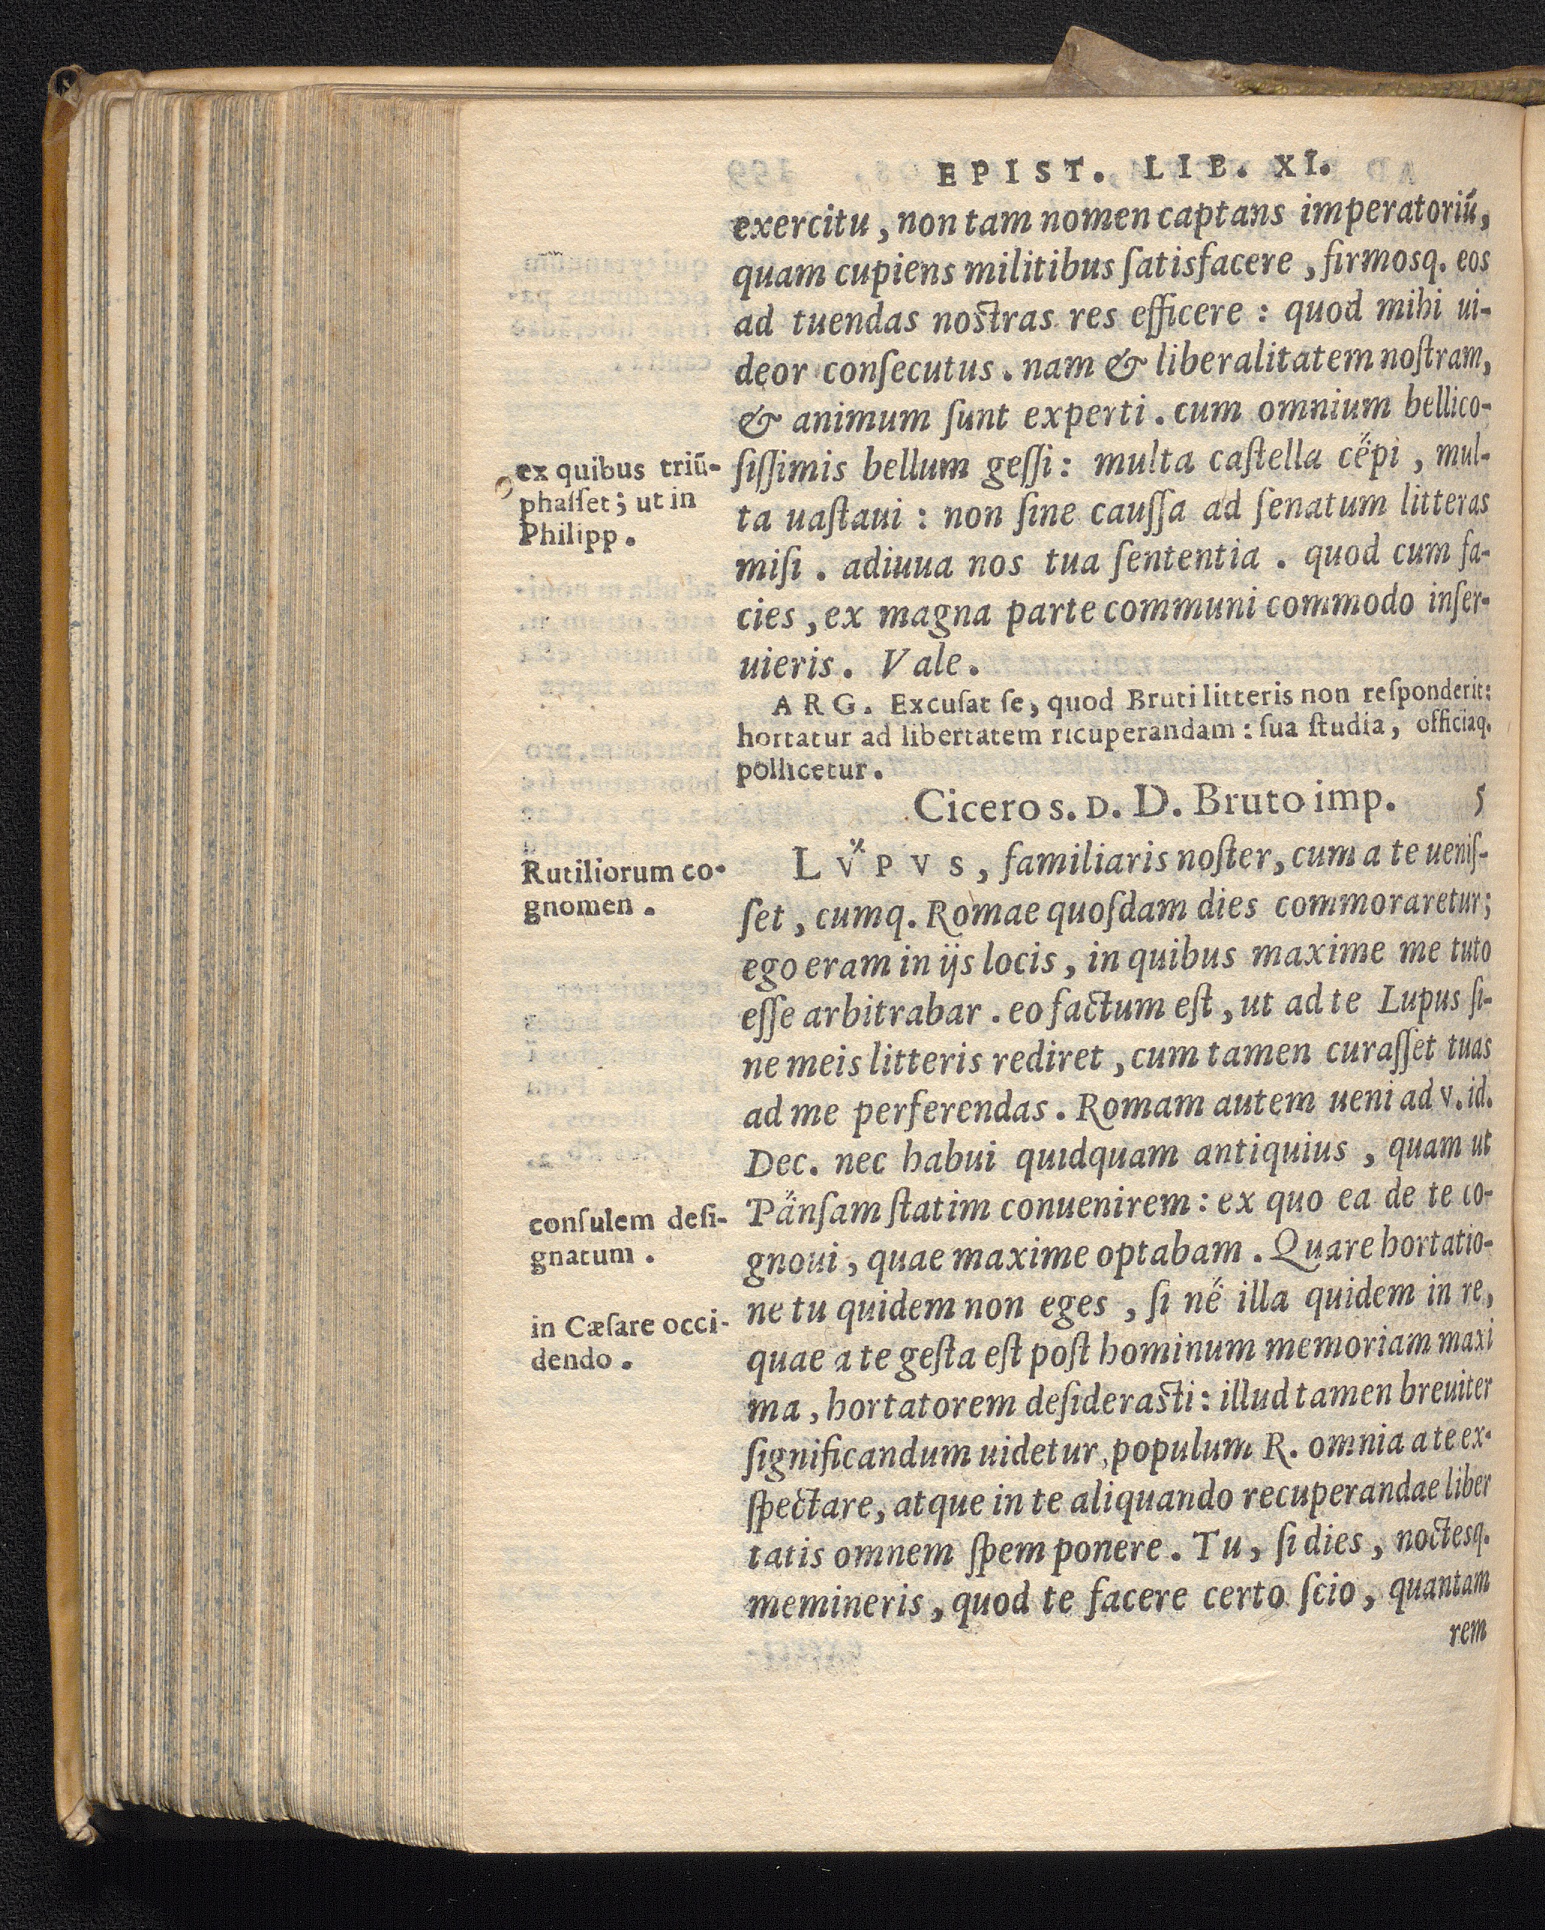 EPIST. LIB. XI.
exercitu, non tam nomen captans imperatoriũ,
quam cupiens militibus ſatisfacere, firmosq. eos
ad tuendas noſtras res efficere: quod mihi ui-
deor conſecutus. nam & liberalitatem noſtram,
& animum ſunt experti. cum omnium bellico-
ſiſſimis bellum geſſi: multa caſtella cepi, mul-
ta uaſtaui: non ſine cauſſa ad ſenatum litteras
miſi. adiuua nos tua ſententia. quod cum fa-
cies, ex magna parte communi commodo inſer-
uieris. Vale.
ex quibus triũ-
phaſſet; ut in
Philipp.
ARG. Excuſat ſe, quod Bruti litteris non reſponderit:
hortatur ad libertatem ricuperandam: ſua ſtudia, officiaq.
pollicetur.
Cicero s. D. D. Bruto imp. 5
LVPVS, familiaris noſter, cum a te ueniſ-
ſet, cumq. Romae quoſdam dies commoraretur;
ego eram in ijs locis, in quibus maxime me tuto
eſſe arbitrabar. eo factum eſt, ut ad te Lupus ſi-
ne meis litteris rediret, cum tamen curaſſet tuas
ad me perferendas. Romam autem ueni ad v. id.
Dec. nec habui quidquam antiquius, quam ut
Panſam ſtatim conuenirem: ex quo ea de te co-
gnoui, quae maxime optabam. Quare hortatio-
ne tu quidem non eges, ſi ne illa quidem in re,
quae a te geſta eſt poſt hominum memoriam maxi
ma, hortatorem deſideraſti: illud tamen breuiter
ſignificandum uidetur, populum R. omnia a te ex-
ſpectare, atque in te aliquando recuperandae liber
tatis omnem ſpem ponere. Tu, ſi dies, noctesq.
memineris, quod te facere certo ſcio, quantam
rem
Rutiliorum co-
gnomen.
conſulem deſi-
gnatum.
in Cæſare occi-
dendo.